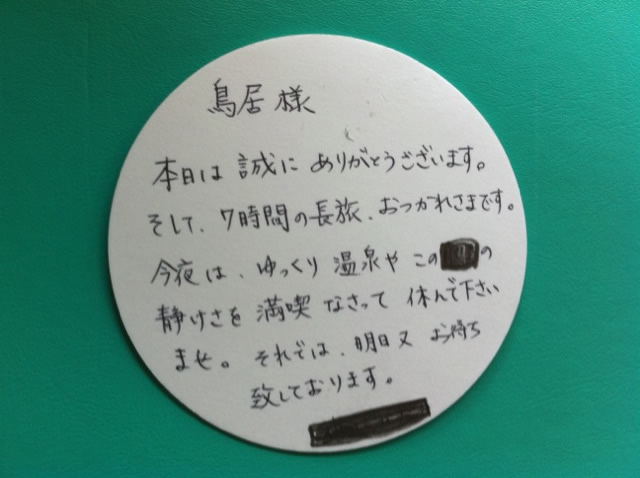 鳥居様
本日は誠にありがとうございます。
そして、7時間の長旅、おつかれさまです。
今夜は、ゆっくり温泉やこの の
静けさを満喫なさって休んで下さい
ませ。それでは、明日又お待ち
致しております。